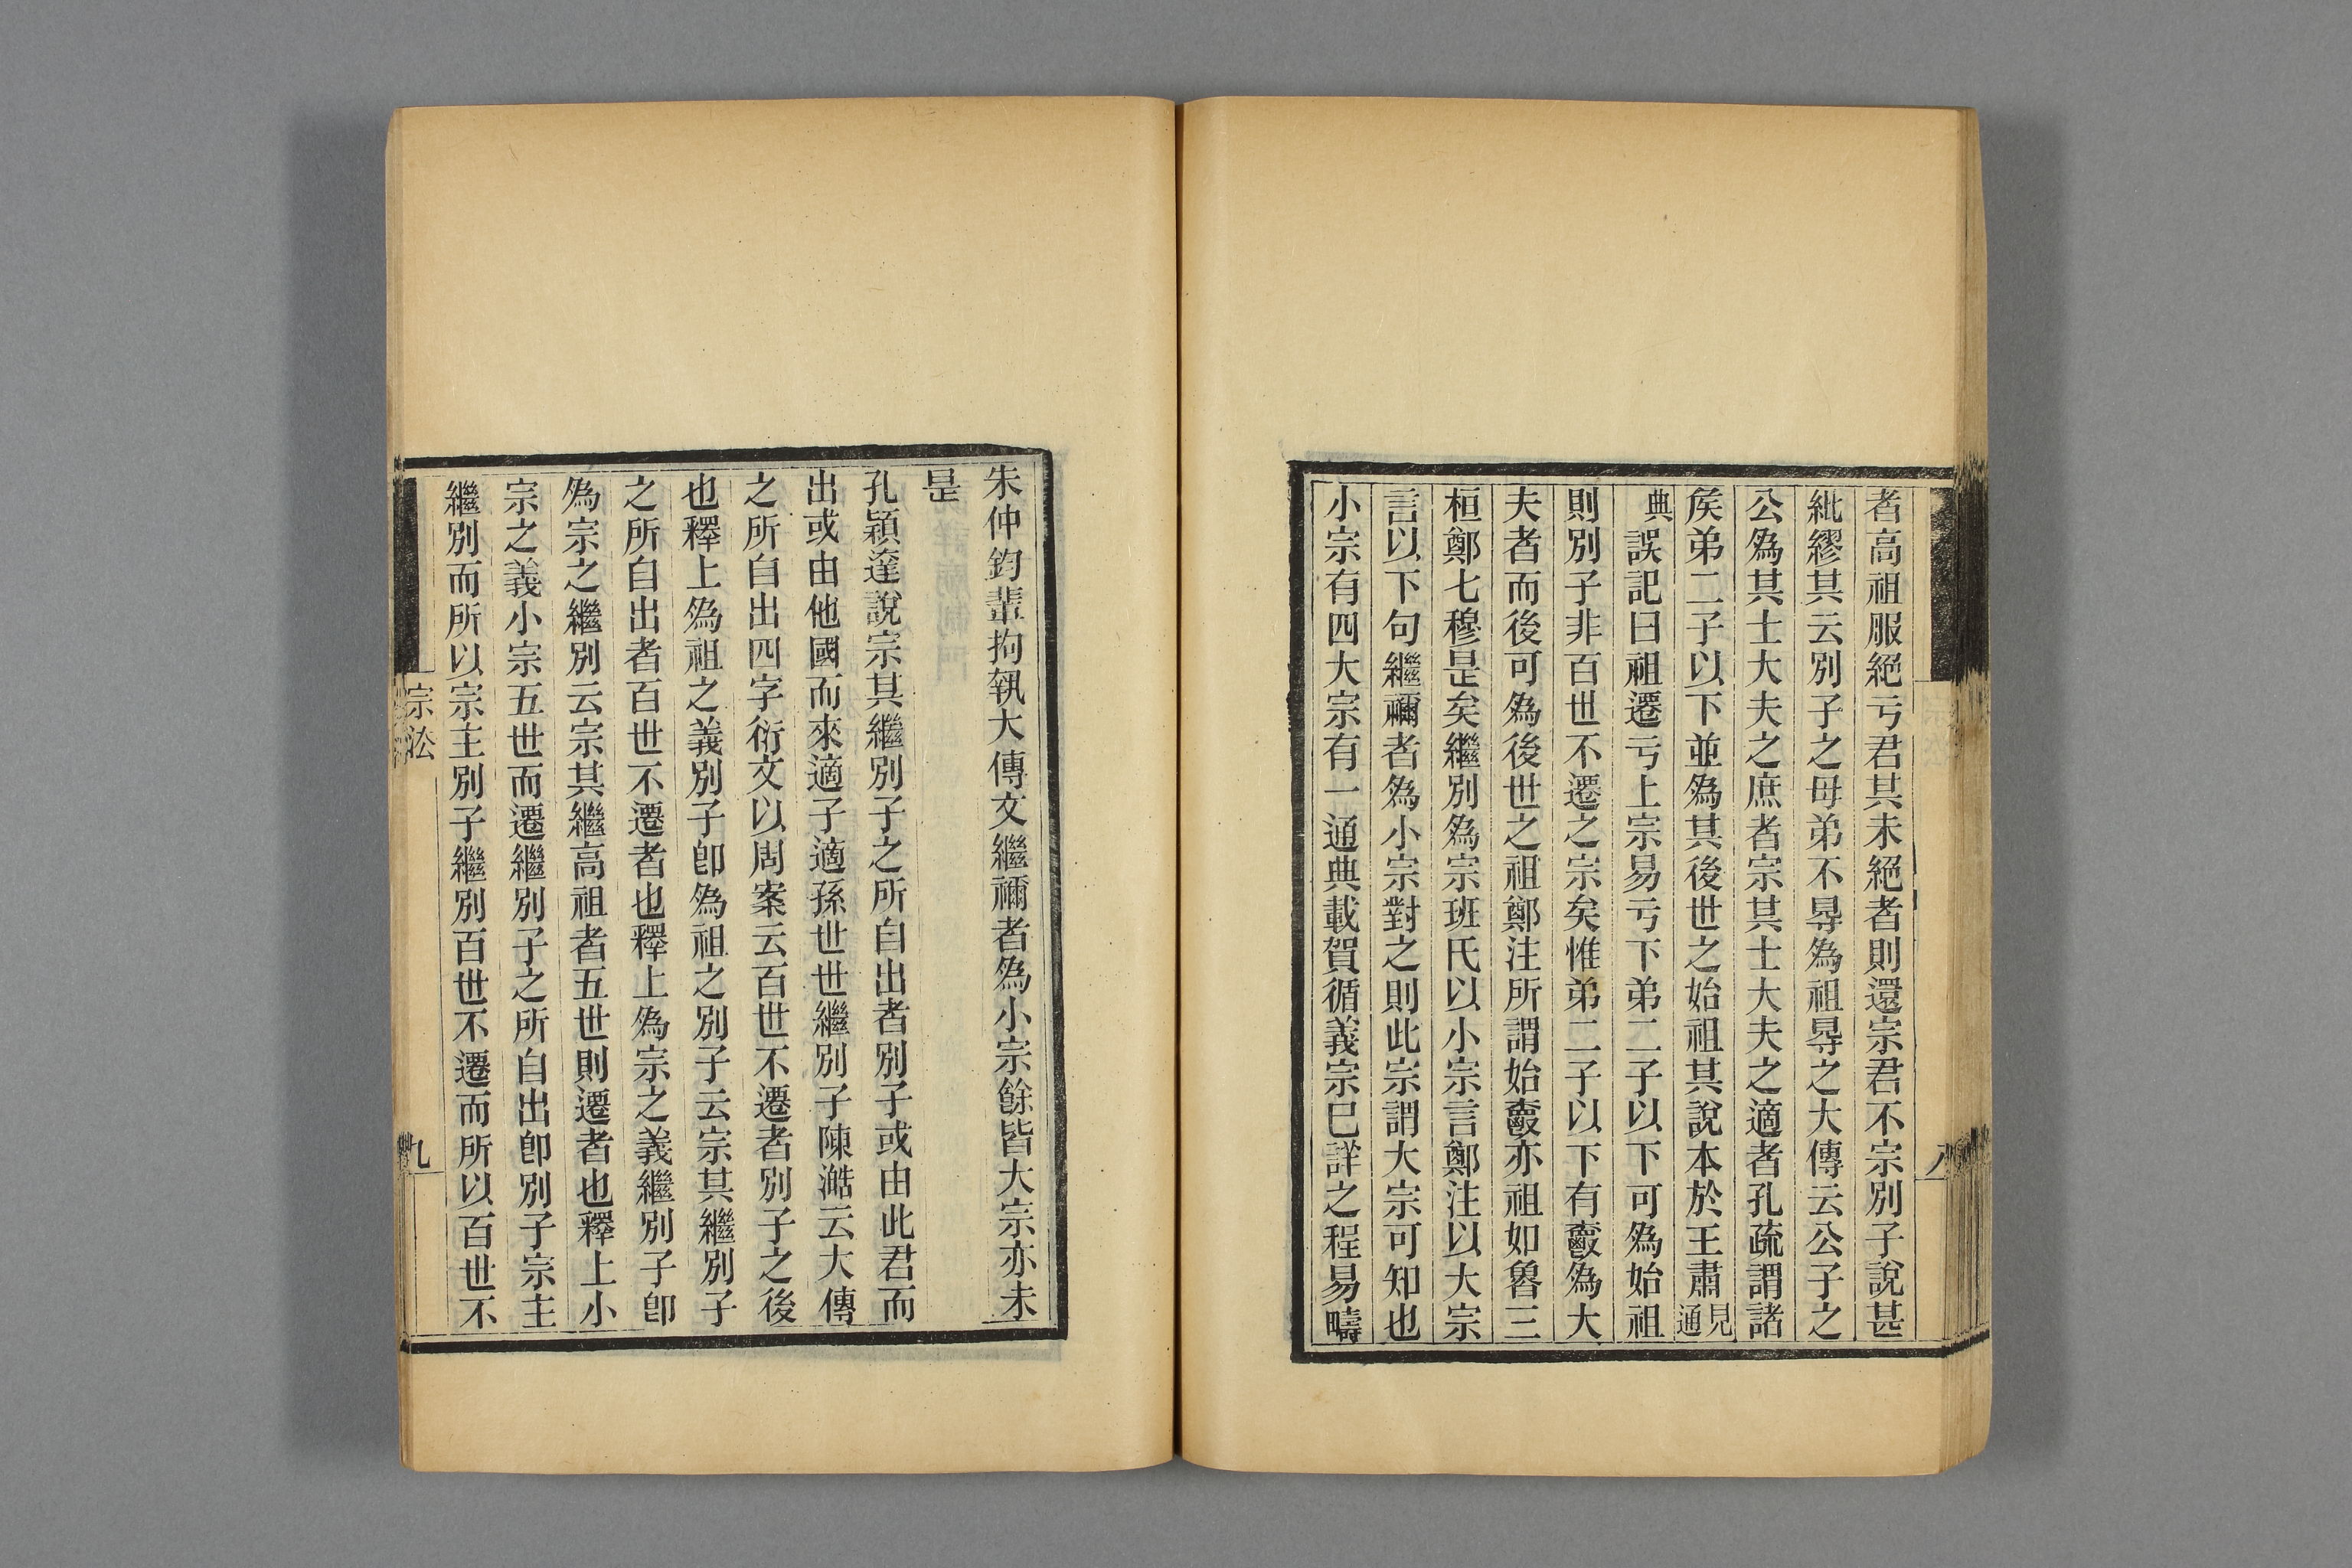 者高祖服絕亏君其未絕者則還宗君不宗別子說甚
紕繆其云別子之母弟不㝵為祖㝵之大傳云公子之
公為其士大夫之庶者宗其士大夫之適者孔疏謂諸
矦弟二子以下並為其後世之始祖其說本於王肅見通
典誤記曰祖遷亏上宗易亏下弟二子以下可為始祖
則別子非百世不遷之宗矣惟弟二子以下有爵為大
夫者而後可為後世之祖鄭注所謂始爵亦祖如魯三
桓鄭七穆是矣繼別為宗班氏以小宗言鄭注以大宗
言以下句繼禰者為小宗對之則此宗謂大宗可知也
小宗有四大宗有一通典載賀循義宗已詳之程易疇
八
朱仲鈞輩拘執大傳文繼禰者為小宗餘皆大宗亦未
是
孔穎達說宗其繼別子之所自出者別子或由此君而
出或由他國而來適子適孫世世繼別子陳澔云大傳
之所自出四字衍文以周案云百世不遷者別子之後
也釋上為祖之義別子卽為祖之別子云宗其繼別子
之所自出者百世不遷者也釋上為宗之義繼別子卽
為宗之繼別云宗其繼高祖者五世則遷者也釋上小
宗之義小宗五世而遷繼別子之所自出卽別子宗主
繼別而所以宗主別子繼別百世不遷而所以百世不
宗㳒
九